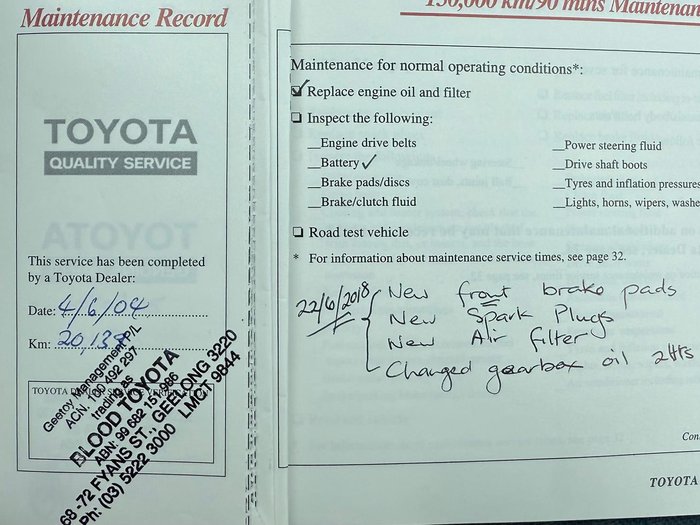 Maintenance Record
TOYOTA
QUALITY SERVICE
This service has been completed
by a Toyota Dealer:
Date: 4/6/04
Km: 20,138
TOYOTA
Geetoy Management P/L
ACN. 100 492 297
trading as
BLOOD TOYOTA
ABN: 99 682 151 986
68-72 FYANS ST., GEELONG 3220
Ph: (03) 5222 3000 LMCT 9844
150,000 km/90 mths Maintenan
Maintenance for normal operating conditions*:
Replace engine oil and filter
Inspect the following:
__Engine drive belts
__Battery ✓
__Brake pads/discs
__Brake/clutch fluid
__Power steering fluid
__Drive shaft boots
__Tyres and inflation pressures
__Lights, horns, wipers, washe
Road test vehicle
* For information about maintenance service times, see page 32.
22/6/2018
New front brake pads
New Spark Plugs
New Air filter
Changed gearbox oil 2lts
Con
TOYOTA